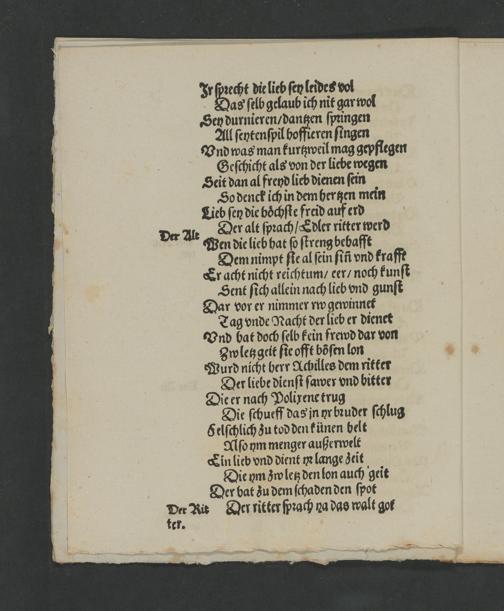 Ir sprecht die lieb sey leides vol
Das selb gelaub ich nit gar wol
Sey durnieren/dantzen springen
All seytenspil hoffieren singen
Vnd was man kurtzweil mag gepflegen
Geschicht als von der liebe wegen
Seit dan al freyd lieb dienen sein
So denck ich in dem hertzen mein
Lieb sey die höchste freid auf erd
Der alt sprach/Edler ritter werd
Der Alt
Wen die lieb hat so streng behafft
Dem nimpt sie al sein siñ vnd krafft
Er acht nicht reichtum/eer/noch kunst
Sent sich allein nach lieb vnd gunst
Dar vor er nimmer rw gewinnet
Tag vnde Nacht der lieb er dienet
Vnd hat doch selb kein frewd dar von
Zw letz geit sie offt bösen lon
Wurd nicht herr Achilles dem ritter
Der liebe dienst sawer vnd bitter
Die er nach Polixene trug
Die schueff das jn yr bruder schlug
Felschlich zu tod den künen helt
Also ym menger außerwelt
Ein lieb vnd dient yr lange zeit
Die ym zw letz den lon auch geit
Der hat zu dem schaden den spot
Der Rit Der ritter sprach ya das walt got
ter.